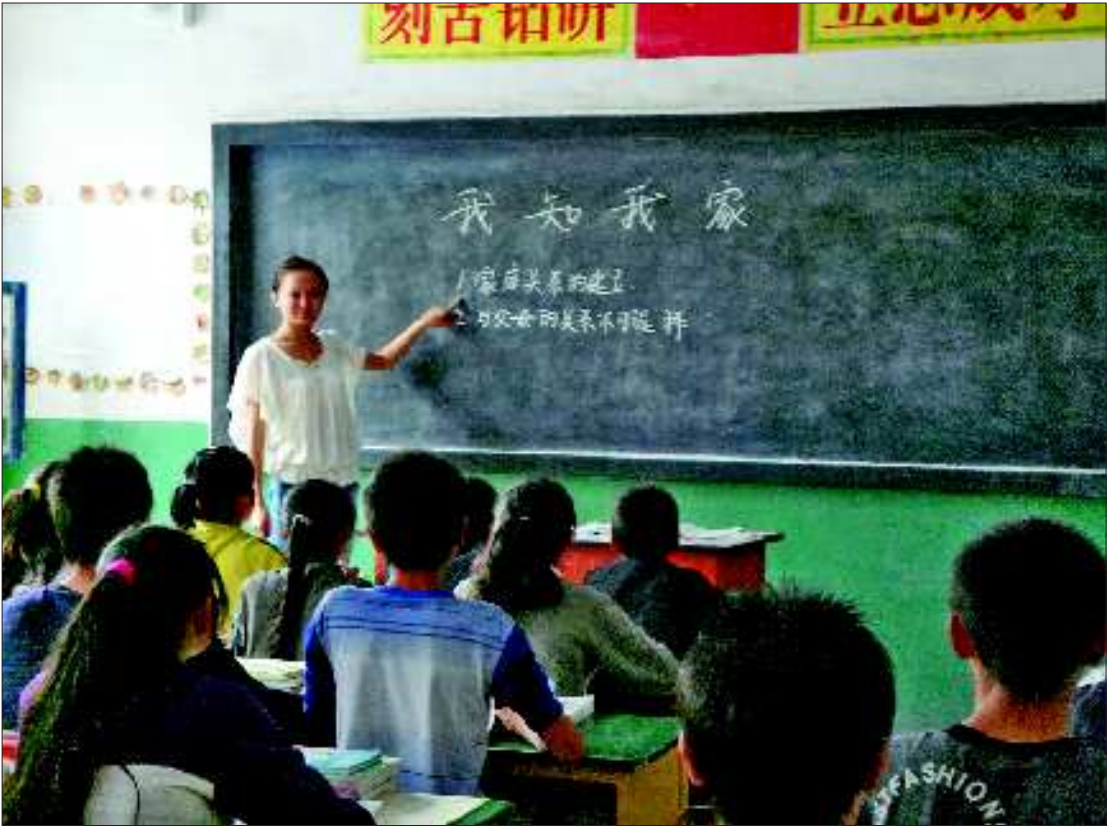 刻苦钻研
立志成才
我知我家
1 家庭关系的建立
2 与父母的关系不可选择
FASHION